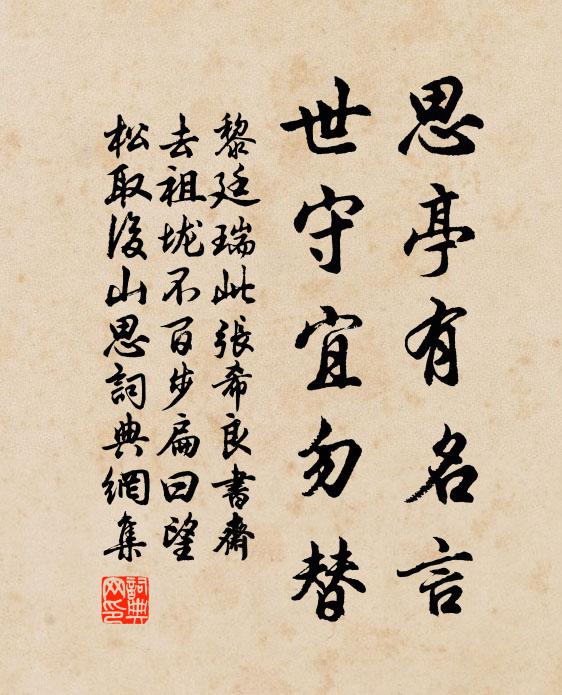 思亭有名言
世守宜勿替
黎廷瑞此張希良書齋
去祖垅不百步扁曰望
松取後山思詞典網集
詞典
网印